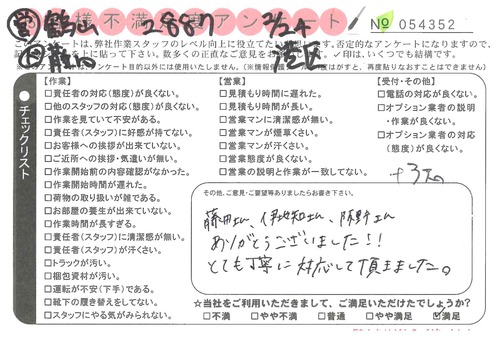 営 鶴山 2887 2/24
様不満 アンケート No 054352
港区
このアンケートは、弊社作業スタッフのレベル向上に役立てたい
想します。否定的なアンケートになりますので、
に上に貼って下さい。数多くの正直なご意見をお
✓印は、いくつでも結構です。
アンケート目的以外には使用いたしません。
チェックリスト
【作業】
□責任者の対応(態度)が良くない。
□他のスタッフの対応(態度)が良くない。
□作業を見ていて不安がある。
□責任者(スタッフ)に好感が持てない。
□お客様への挨拶が出来ていない。
□ご近所への挨拶・気遣いが無い。
□作業開始前の内容確認がなかった。
□作業開始時間が遅れた。
□荷物の取り扱いが雑である。
□お部屋の養生が出来ていない。
□作業時間が長すぎる。
□責任者(スタッフ)に清潔感が無い。
□責任者(スタッフ)が汗くさい。
□トラックが汚い。
□梱包資材が汚い。
□運転が不安(下手)である。
□靴下の履き替えをしてない。
□スタッフにやる気がみられない。
【営業】
□見積もり時間に遅れた。
□見積もり時間が長い。
□営業マンに清潔感が無い。
□営業マンが煙草くさい。
□営業マンが汗くさい。
□営業態度が良くない。
□営業の説明と作業が一致してない。
【受付・その他】
□電話の対応が良くない。
□オプション業者の説明
・作業が良くない。
□オプション業者の対応
(態度)が良くない。
+3点
その他、ご意見・ご要望等ありましたらお書き下さい。
藤田さん、伊地知さん、陳野さん
ありがとうございました!!
とても丁寧に対応して頂きました。
☆当社をご利用いただきまして、ご満足いただけたでしょうか?
□不満 □やや不満 □普通 □やや満足 ☑満足